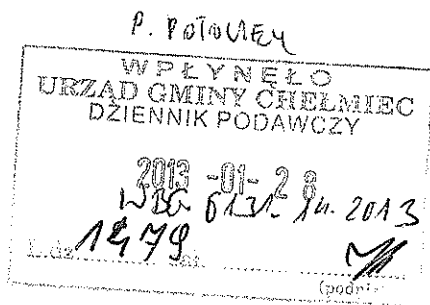 P.
WPŁYNĘŁO
URZĄD GMINY CHEŁMIEC
DZIENNIK PODAWCZY
2013 -01- 28
6131. 2013
L.dz. 1479 zał.
(podpis